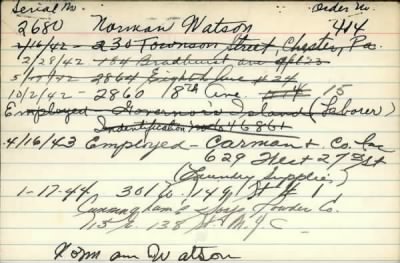 Serial No. Order No.
2680 Norman Watson 414
4/16/42 - 230 Townson Street, Chester, Pa.
2/28/42 - 154 Bradhurst ave
5/10/42 - 2864 Eighth Ave # 24
10/2/42 - 2860 8th Ave. #14 15
Employed - Governor's Island (Laborer)
Indentification no 46861
4/16/43 Employed - Carman & Co. Inc
629 West 27 St
(Laundry Supplies)
1-17-44 301 W. 149 St # 1
Cunningham's Soap Powder Co.
115 E. 138 St N.Y.C
Norman Watson